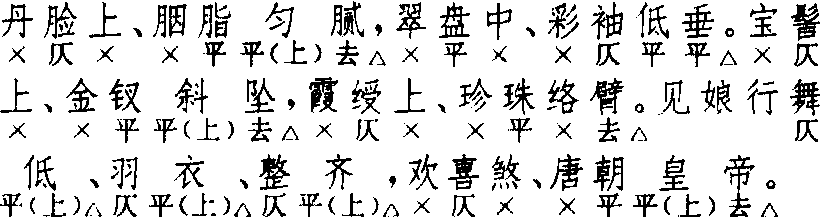 丹脸上、胭脂匀腻，翠盘中、彩袖低垂。宝髻
× 仄 × × 平 平(上) 去△ × 平 × × 仄 平 平△ × 仄
上、金钗斜坠，霞绶上、珍珠络臂。见娘行舞
× × 平 平(上) 去△ × 仄 × × 平 × 去△ 仄
低、羽衣、整齐，欢喜煞、唐朝皇帝。
平(上)△ 仄 平(上)△ 仄 平(上)△ × 仄 × × 平 平(上) 去△